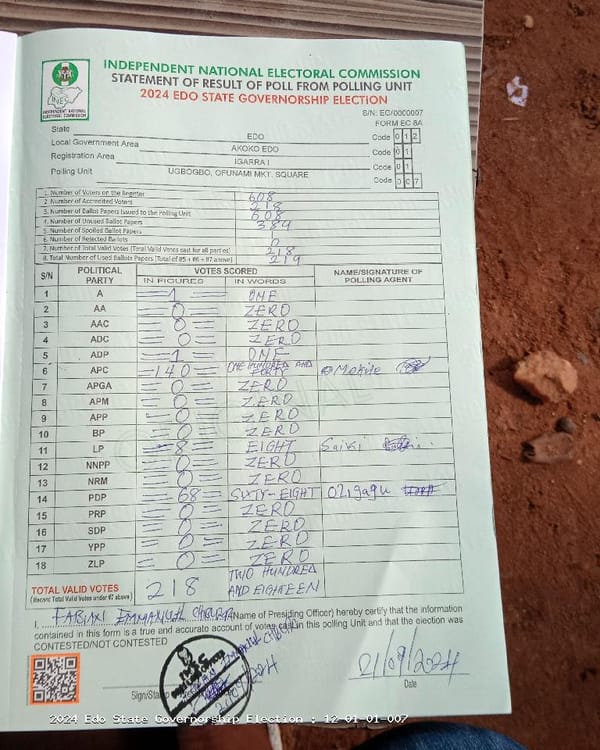 INDEPENDENT NATIONAL ELECTORAL COMMISSION
STATEMENT OF RESULT OF POLL FROM POLLING UNIT
2024 EDO STATE GOVERNORSHIP ELECTION
S/N: EC/0000007
FORM EC 8A
INDEPENDENT NATIONAL ELECTORAL COMMISSION
State EDO Code 0 1 2
Local Government Area AKOKO EDO Code 0 1
Registration Area IGARRA I Code 0 1
Polling Unit UGBOGBO, OFUNAMI MKT. SQUARE Code 0 0 7
1. Number of Voters on the Register 608
2. Number of Accredited Voters 218
3. Number of Ballot Papers Issued to the Polling Unit 608
4. Number of Unused Ballot Papers 389
5. Number of Spoiled Ballot Papers
6. Number of Rejected Ballots
7. Number of Total Valid Votes (Total Valid Votes cast for all parties) 218
8. Total Number of Used Ballots Papers (Total of #5 + #6 + #7 above) 219
S/N POLITICAL PARTY VOTES SCORED NAME/SIGNATURE OF POLLING AGENT
IN FIGURES IN WORDS
1 A 1 ONE
2 AA 0 ZERO
3 AAC 0 ZERO
4 ADC 0 ZERO
5 ADP 1 ONE
6 APC 140 ONE HUNDRED AND FORTY
7 APGA 0 ZERO
8 APM 0 ZERO
9 APP 0 ZERO
10 BP 0 ZERO
11 LP 8 EIGHT
12 NNPP 0 ZERO
13 NRM 0 ZERO
14 PDP 68 SIXTY-EIGHT
15 PRP 0 ZERO
16 SDP 0 ZERO
17 YPP 0 ZERO
18 ZLP 0 ZERO
TOTAL VALID VOTES 218 TWO HUNDRED AND EIGHTEEN
(Record Total Valid Votes under #7 above)
I, EMMANUEL (Name of Presiding Officer) hereby certify that the information
contained in this form is a true and accurate account of votes cast in this polling Unit and that the election was
CONTESTED/NOT CONTESTED
21/09/2024
Sign/Stamp Date
2024 Edo State Governorship Election : 12-01-01-007